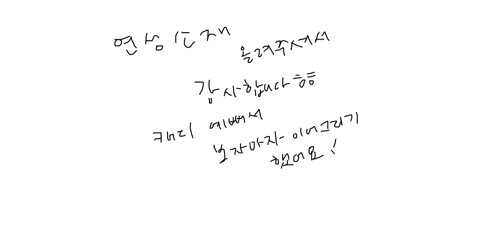 영상인재
올려주셔서
감사합니다ㅎㅎ
캐미 예뻐서
보자마자 이어그리기
했어요!